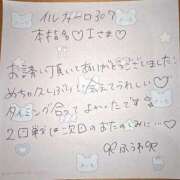 イルガーロ307
本指名♡Iさま♡
お誘い頂いてありがとうございました!
めちゃ久しぶりに会えてうれしい♡
タイミング合って よかったです
2回戦は次回のおたのしみに…♡